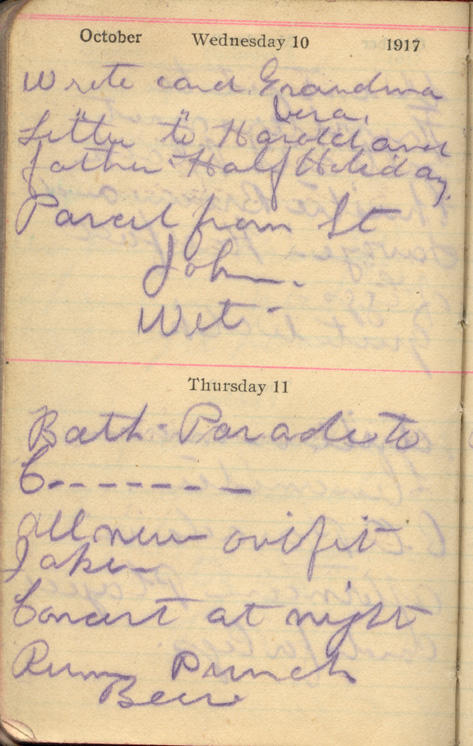 October Wednesday 10 1917
Write card Grandma
Vera.
Letter to Harold and
father Half Holiday.
Parcel from St
John.
Wet.
Thursday 11
Bath. Parade to
C-------
all new outfit
Jake
Concert at night
Rum Punch
Beer